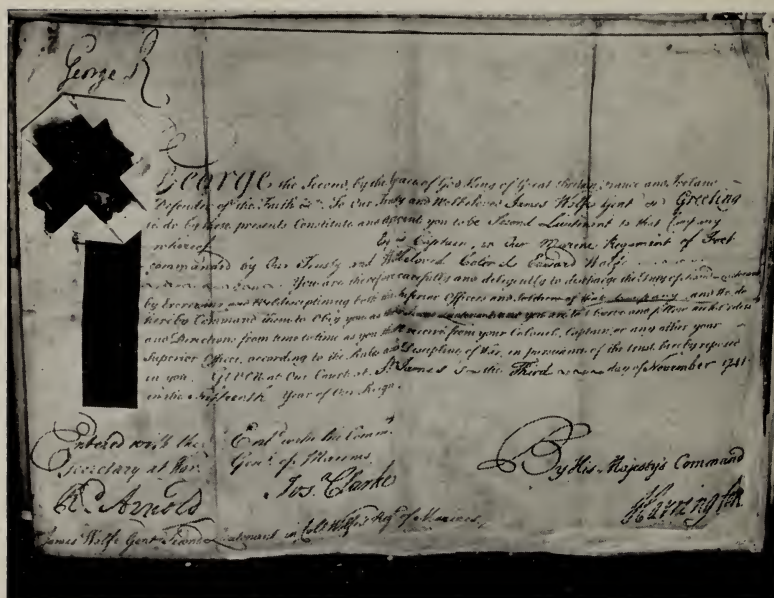 George R
George the Second, by the Grace of God King of Great Britain, France and Ireland
Defender of the Faith &c. To Our Trusty and Wellbeloved James Wolfe Gent Greeting
We do by these presents Constitute and Appoint you to be Second Lieutenant to that Company
whereof Esqr is Captain, in Our Marine Regiment of Foot
commanded by Our Trusty and Wellbeloved Colonel Edward Wolfe
You are therefore carefully and diligently to discharge the Duty of Second Lieutenant
by Exercising and Well disciplining both the Inferior Officers and Soldiers of that Company, and We do
hereby Command them to Obey you as their Second Lieutenant and you are to Observe and follow such Orders
and Directions from time to time as you shall receive from your Colonel, Captain, or any other your
Superior Officer, according to the Rules and Discipline of War, in pursuance of the trust hereby reposed
in you. Given at Our Court at St James's the Third day of November 1741
in the Fifteenth Year of Our Reign.
Entered with the
Secretary at War.
Rd Arnold
Entd with the Commy
Genl of Marines
Jos. Clarke
By His Majesty's Command
Harrington
James Wolfe Gent Second Lieutenant in Coll Wolfe's Regt of Marines